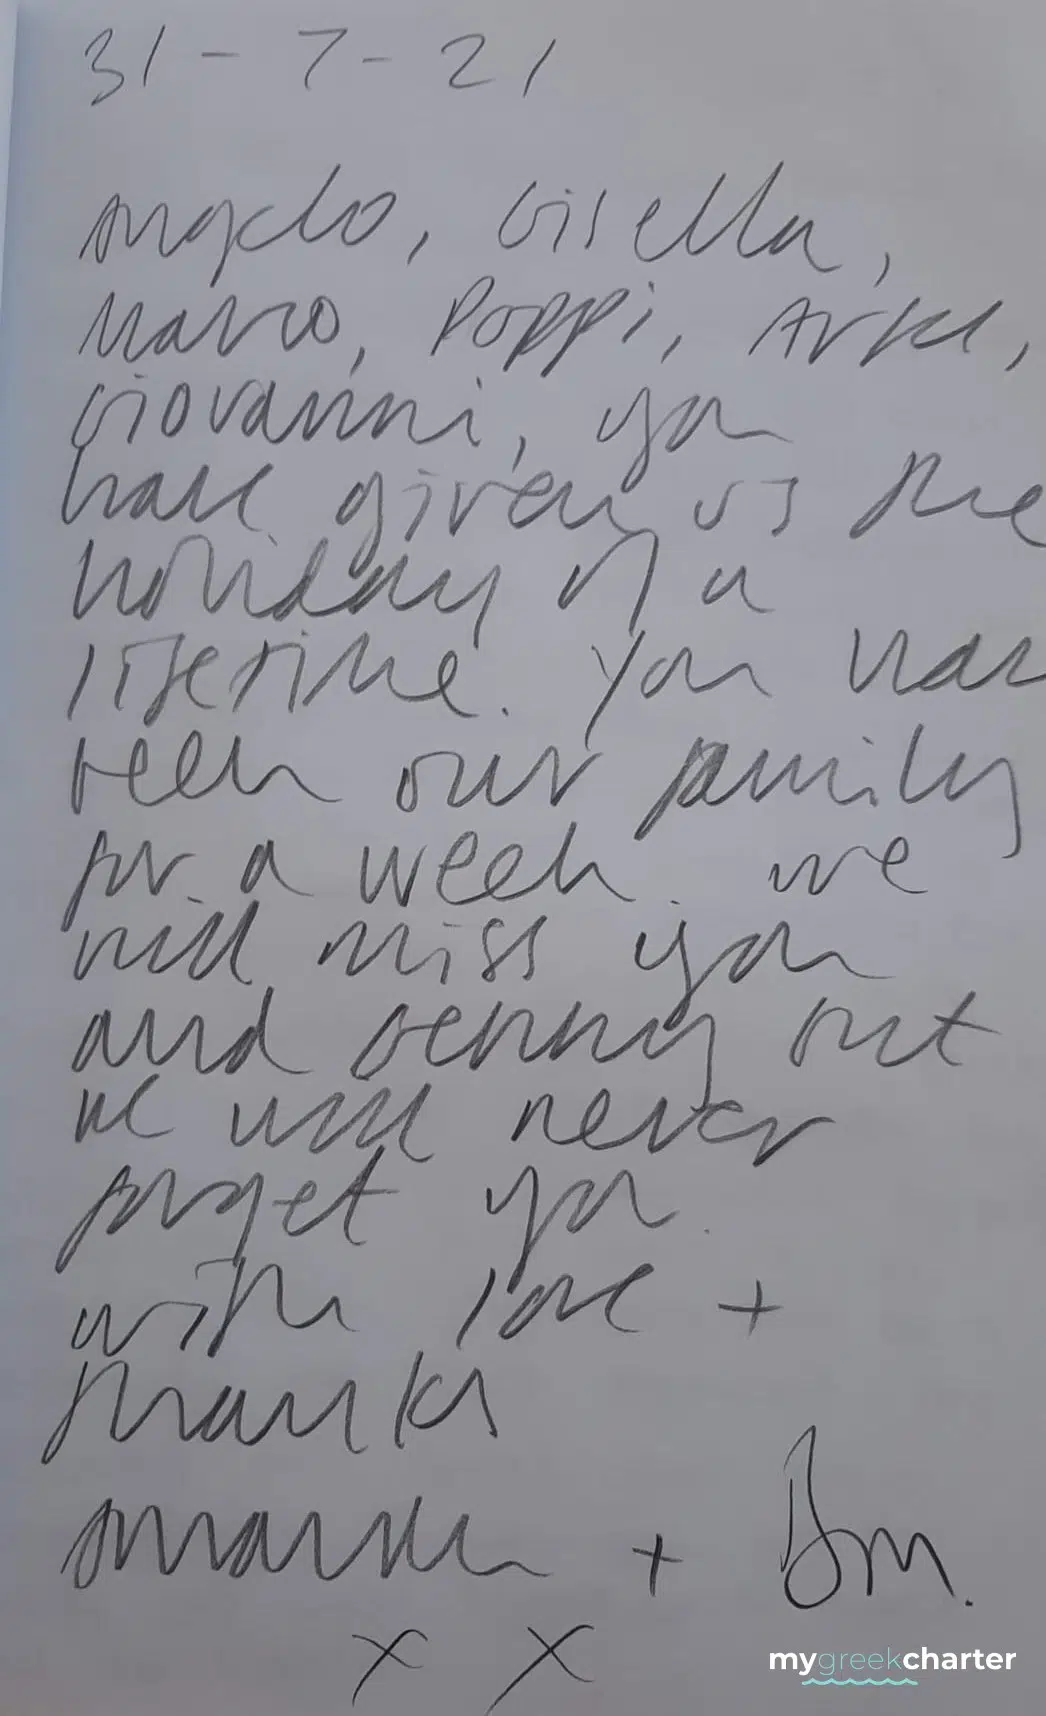 31-7-21
Angelo, Gisella,
Marco, Poppi,
Giovanni, you
have given us the
holiday of a
lifetime. You have
been our family
for a week. we
will miss you
and Benny but
we will never
forget you.
with love +
thanks
+
x x
mygreekcharter